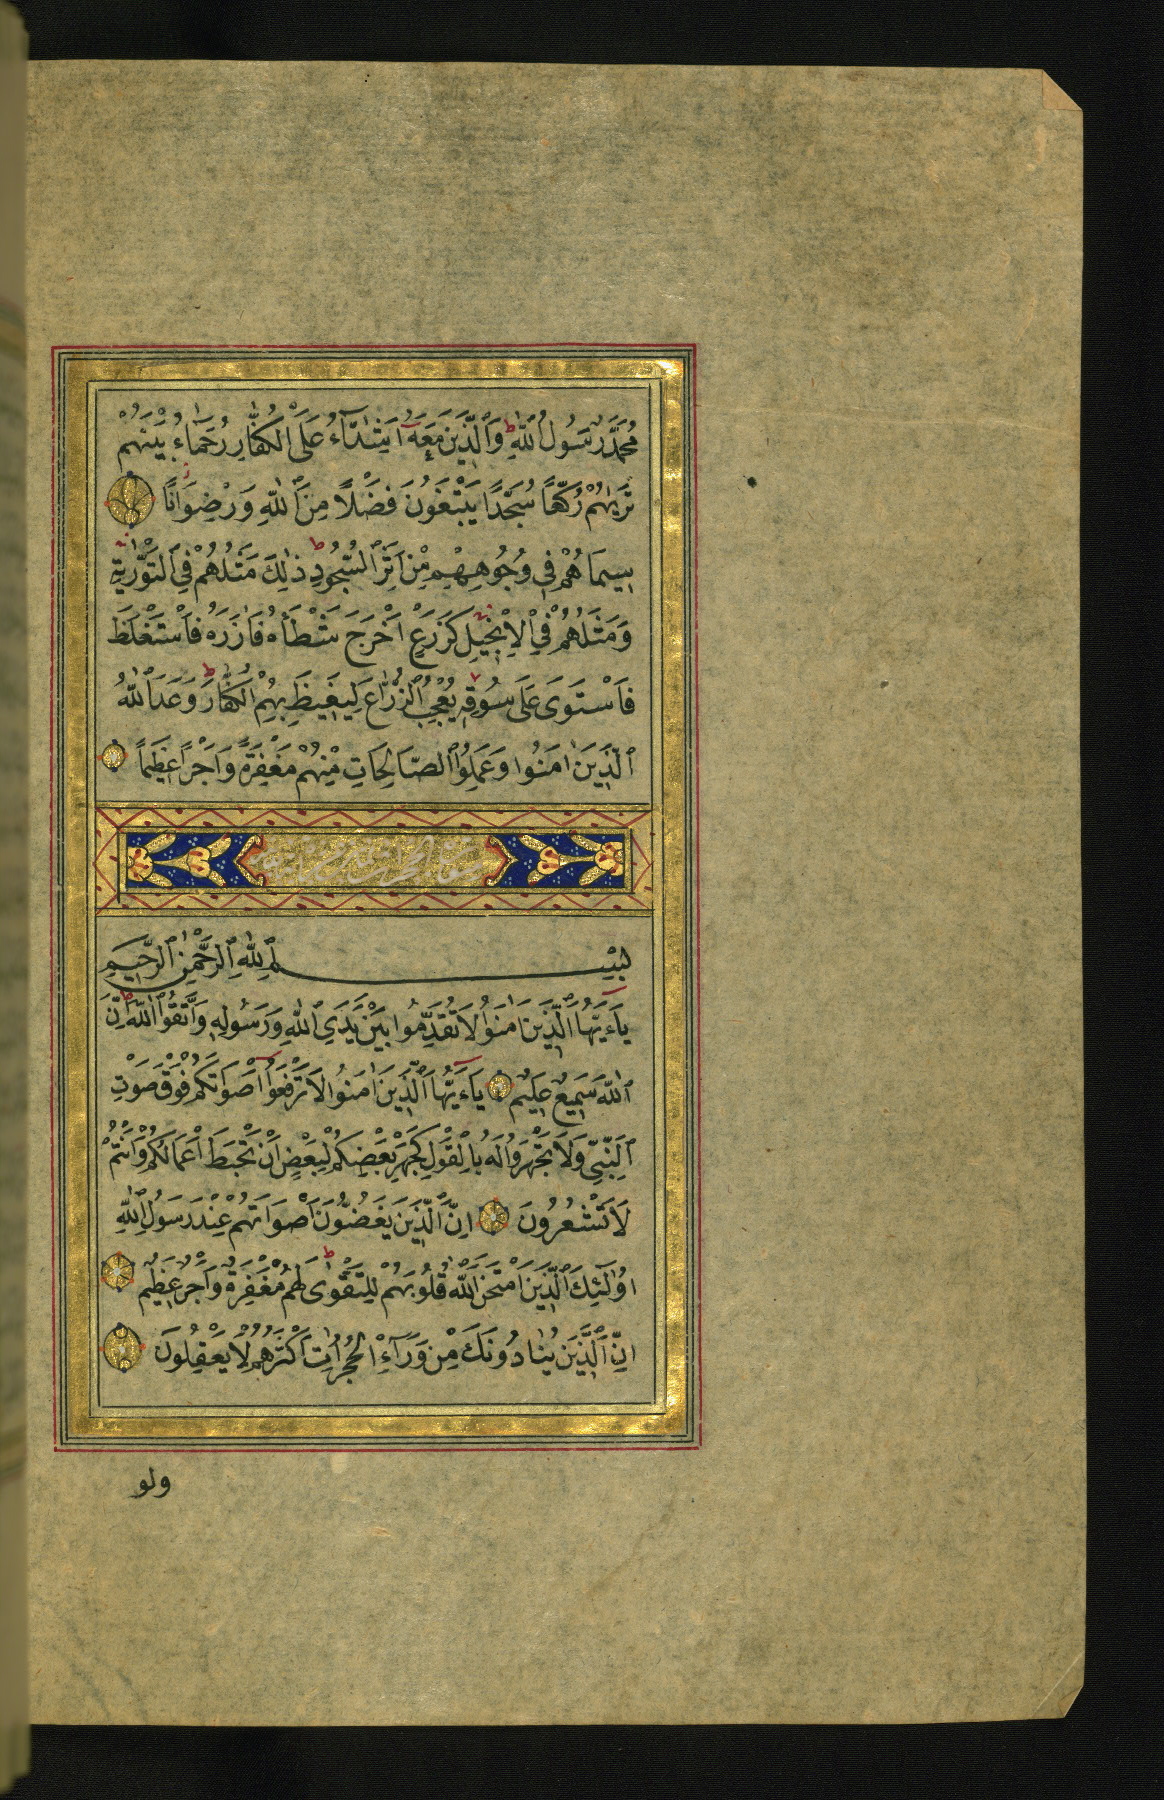 مُحَمَّدٌ رَسُولُ اللّٰهِ ط وَالَّذِينَ مَعَهُٓ اَشِدَّٓاءُ عَلَى الْكُفَّارِ رُحَمَٓاءُ بَيْنَهُمْ
تَرٰيهُمْ رُكَّعًا سُجَّدًا يَبْتَغُونَ فَضْلًا مِنَ اللّٰهِ وَرِضْوَانًا
سِيمَاهُمْ فِي وُجُوهِهِمْ مِنْ اَثَرِ السُّجُودِ ط ذٰلِكَ مَثَلُهُمْ فِي التَّوْرٰيةِ
وَمَثَلُهُمْ فِي الْاِنْجِيلِ كَزَرْعٍ اَخْرَجَ شَطْاَهُ فَاٰزَرَهُ فَاسْتَغْلَظَ
فَاسْتَوٰى عَلٰى سُوقِهِ يُعْجِبُ الزُّرَّاعَ لِيَغِيظَ بِهِمُ الْكُفَّارَ ط وَعَدَ اللّٰهُ
الَّذِينَ اٰمَنُوا وَعَمِلُوا الصَّالِحَاتِ مِنْهُمْ مَغْفِرَةً وَاَجْرًا عَظِيمًا
سورة الحجرات
بِسْمِ اللّٰهِ الرَّحْمٰنِ الرَّحِيمِ
يَٓاءَيُّهَا الَّذِينَ اٰمَنُوا لَا تُقَدِّمُوا بَيْنَ يَدَيِ اللّٰهِ وَرَسُولِهِ وَاتَّقُوا اللّٰهَ ط اِنَّ
اللّٰهَ سَمِيعٌ عَلِيمٌ يَٓاءَيُّهَا الَّذِينَ اٰمَنُوا لَا تَرْفَعُٓوا اَصْوَاتَكُمْ فَوْقَ صَوْتِ
النَّبِيِّ وَلَا تَجْهَرُوا لَهُ بِالْقَوْلِ كَجَهْرِ بَعْضِكُمْ لِبَعْضٍ اَنْ تَحْبَطَ اَعْمَالُكُمْ وَاَنْتُمْ
لَا تَشْعُرُونَ اِنَّ الَّذِينَ يَغُضُّونَ اَصْوَاتَهُمْ عِنْدَ رَسُولِ اللّٰهِ
اُولٰٓئِكَ الَّذِينَ امْتَحَنَ اللّٰهُ قُلُوبَهُمْ لِلتَّقْوٰى ط لَهُمْ مَغْفِرَةٌ وَاَجْرٌ عَظِيمٌ
اِنَّ الَّذِينَ يُنَادُونَكَ مِنْ وَرَٓاءِ الْحُجُرَاتِ اَكْثَرُهُمْ لَا يَعْقِلُونَ
ولو